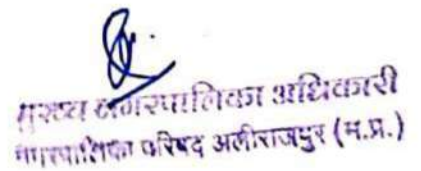 मुख्य नगरपालिका अधिकारी
नगरपालिका परिषद अलीराजपुर (म.प्र.)